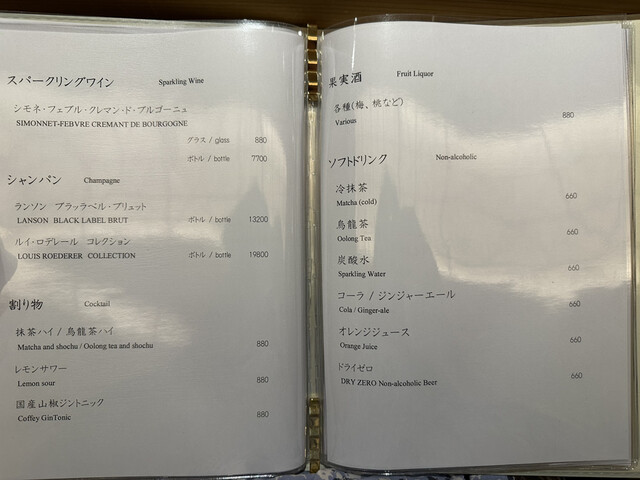 スパークリングワイン Sparkling Wine
シモネ・フェブル・クレマン・ド・ブルゴーニュ
SIMONNET-FEBVRE CREMANT DE BOURGOGNE
グラス / glass 880
ボトル / bottle 7700
シャンパン Champagne
ランソン ブラッラベル・ブリュット
LANSON BLACK LABEL BRUT ボトル / bottle 13200
ルイ・ロデレール コレクション
LOUIS ROEDERER COLLECTION ボトル / bottle 19800
割り物 Cocktail
抹茶ハイ / 烏龍茶ハイ
Matcha and shochu / Oolong tea and shochu 880
レモンサワー
Lemon sour 880
国産山椒ジントニック
Coffey GinTonic 880
果実酒 Fruit Liquor
各種(梅、桃など)
Various 880
ソフトドリンク Non-alcoholic
冷抹茶
Matcha (cold) 660
烏龍茶
Oolong Tea 660
炭酸水
Sparkling Water 660
コーラ / ジンジャーエール
Cola / Ginger-ale 660
オレンジジュース
Orange Juice 660
ドライゼロ
DRY ZERO Non-alcoholic Beer 660